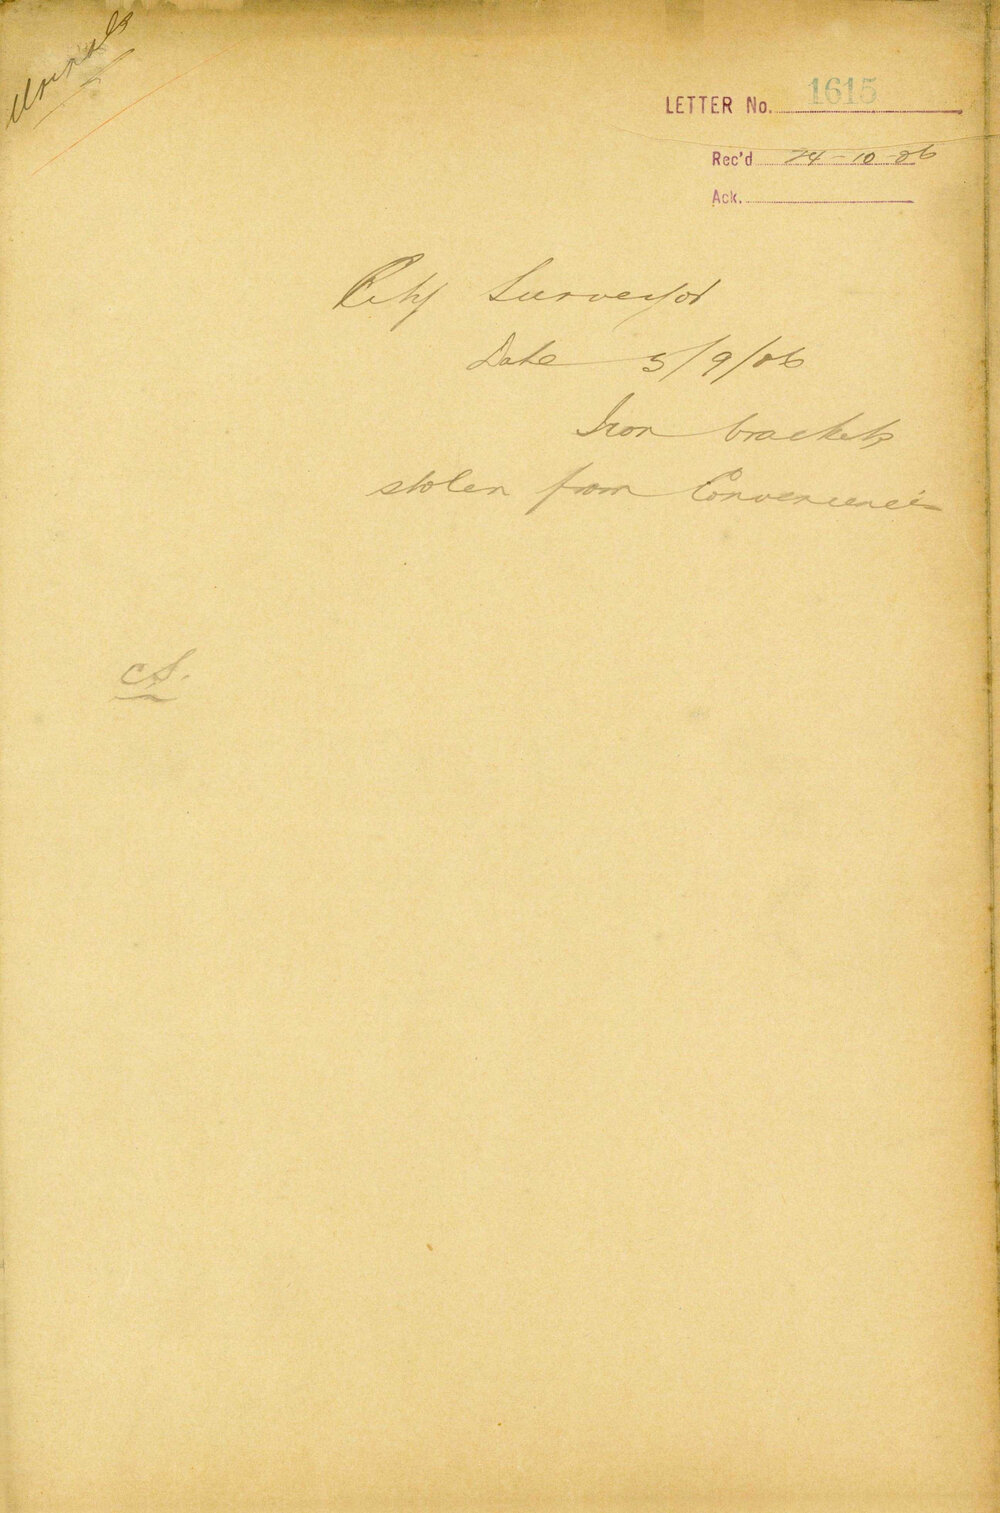 Urinals
LETTER No. 1615
Rec'd 24-10-06
Ack.
City Surveyor
Date 5/9/06
Iron brackets
stolen from Conveniences
CS.